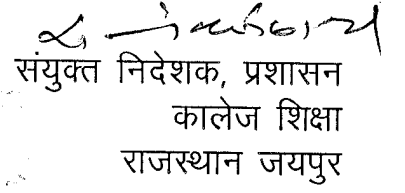 संयुक्त निदेशक, प्रशासन
कालेज शिक्षा
राजस्थान जयपुर